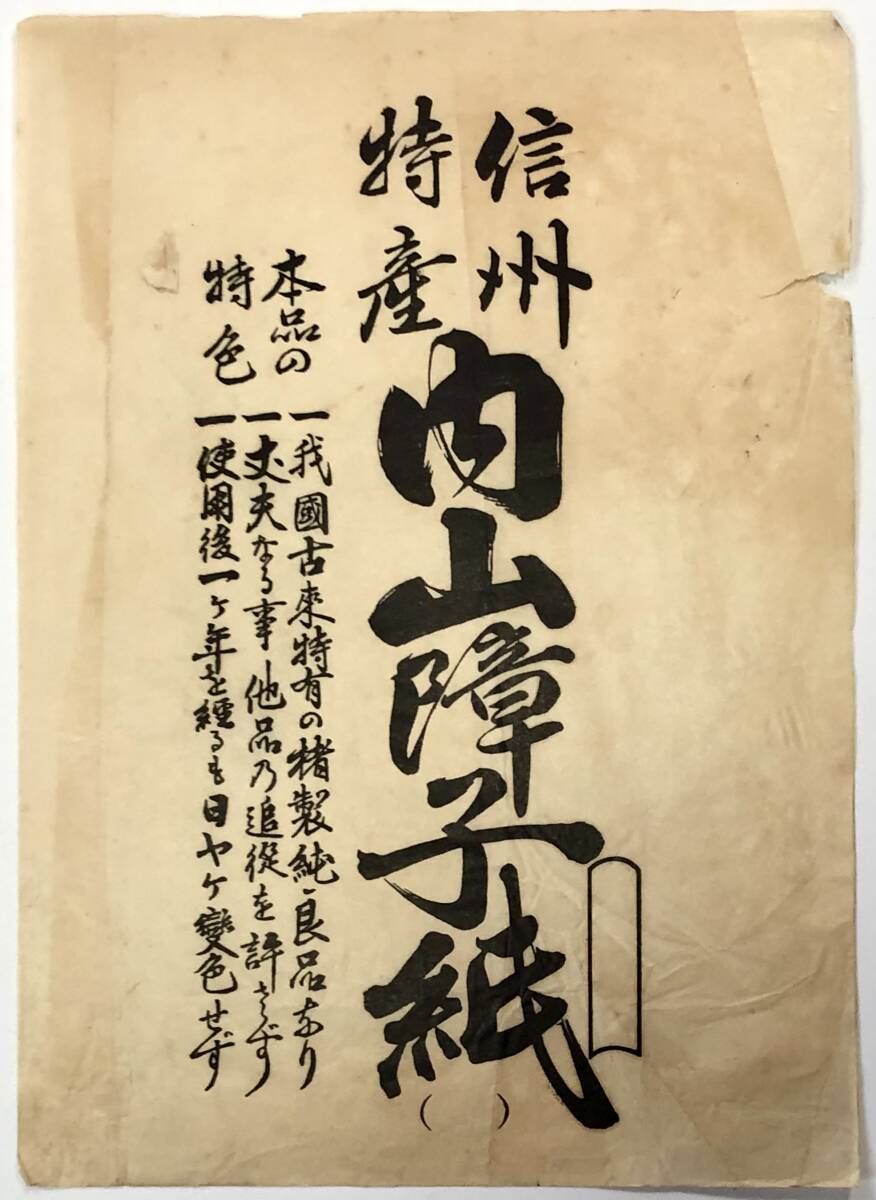 信州
特産
内山障子紙
( )
本品の
特色
一我國古来特有の楮製純良品なり
一丈夫なる事他品乃追従を許さず
一使用後一ヶ年を經るも日ヤケ變色せず